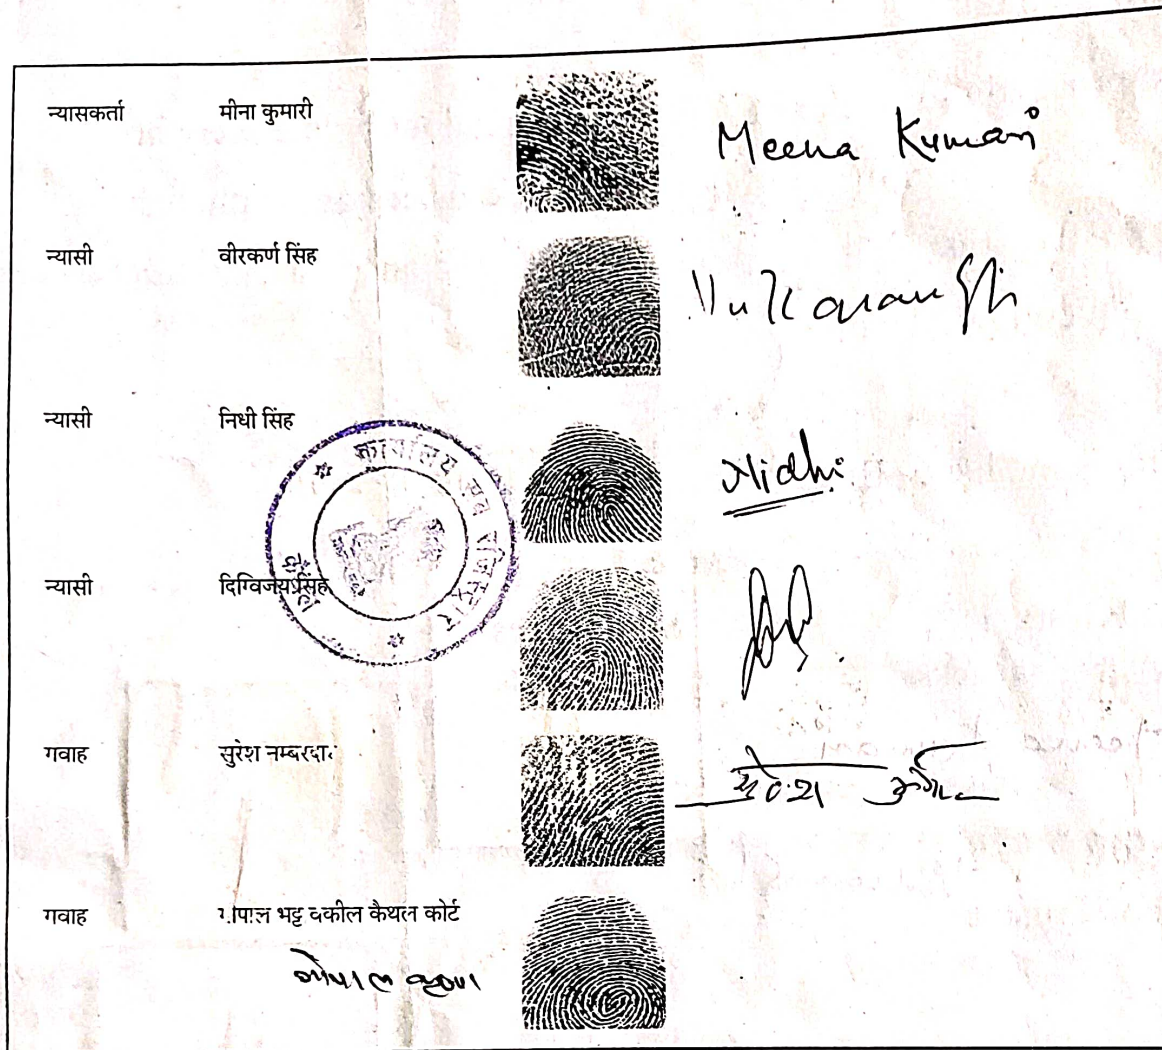 न्यासकर्ता मीना कुमारी Meena Kumari
न्यासी वीरकर्ण सिंह
न्यासी निधी सिंह Nidhi
कार्यालय सब रजिस्ट्रार
न्यासी दिग्विजय सिंह
गवाह सुरेश नम्बरदार
गवाह गोपाल भट्ट वकील कैथल कोर्ट
गोपाल कृष्ण